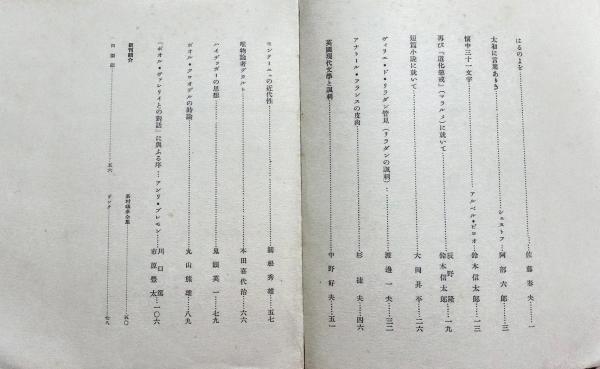 はるのよを……佐藤春夫…一
太初に言葉ありき……シェストフ 阿部六郎…三
懐中三十一文字……アルベル・ピコオ 鈴木信太郎…一三
再び『道化懲戒』(マラルメ)に就いて……辰野隆 鈴木信太郎…一九
短篇小説に就いて……大岡昇平…二六
ヴィリエ・ド・リラダン管見(リラダンの諷刺)…渡邊一夫…三二
アナトール・フランスの皮肉……杉捷夫…四六
英國現代文學と諷刺……中野好夫…五一
モンテーニュの近代性……關根秀雄…五七
唯物論者デカルト……本田喜代治…六六
ハイデッガーの思想……鬼頭英一…七九
ポオル・クロオデルの詩論……丸山熊雄…八九
『ポオル・ヴァレリイとの對話』に與ふる序…アンリ・ブレモン…川口篤 市原豊太…一〇六
新刊紹介
五六
五〇
七九